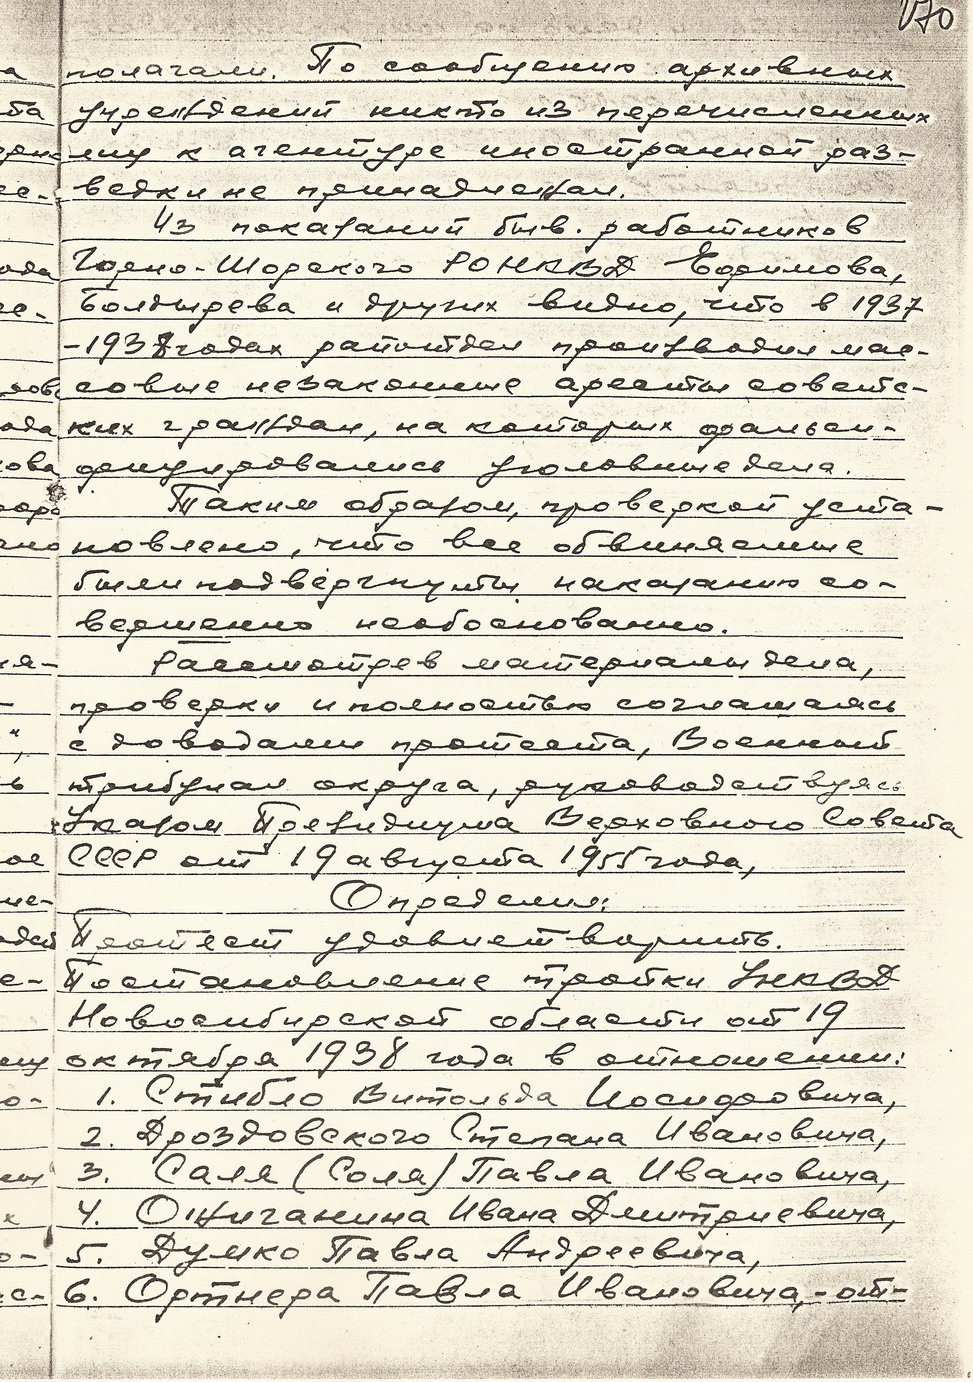 170
полагали. По сообщению архивных
учреждений никто из перечисленных
лиц к агентуре иностранной раз-
ведки не принадлежал.
Из показаний быв. работников
Горно-Шорского РОНКВД Ефимова,
Болдырева и других видно, что в 1937
-1938 годах райотдел производил мас-
совые незаконные аресты советс-
ких граждан, на которых фальси-
фицировались уголовные дела.
Таким образом, проверкой уста-
новлено, что все обвиняемые
были подвергнуты наказанию со-
вершенно необоснованно.
Рассмотрев материалы дела,
проверки и полностью соглашаясь
с доводами протеста, Военный
трибунал округа, руководствуясь
Указом Президиума Верховного Совета
СССР от 19 августа 1955 года,
Определил:
Протест удовлетворить.
Постановление тройки УНКВД
Новосибирской области от 19
октября 1938 года в отношении:
1. Стибло Витольда Иосифовича,
2. Дроздовского Степана Ивановича,
3. Саля (Соля) Павла Ивановича,
4. Ожиганина Ивана Дмитриевича,
5. Думко Павла Андреевича,
6. Ортнера Павла Ивановича,- от-